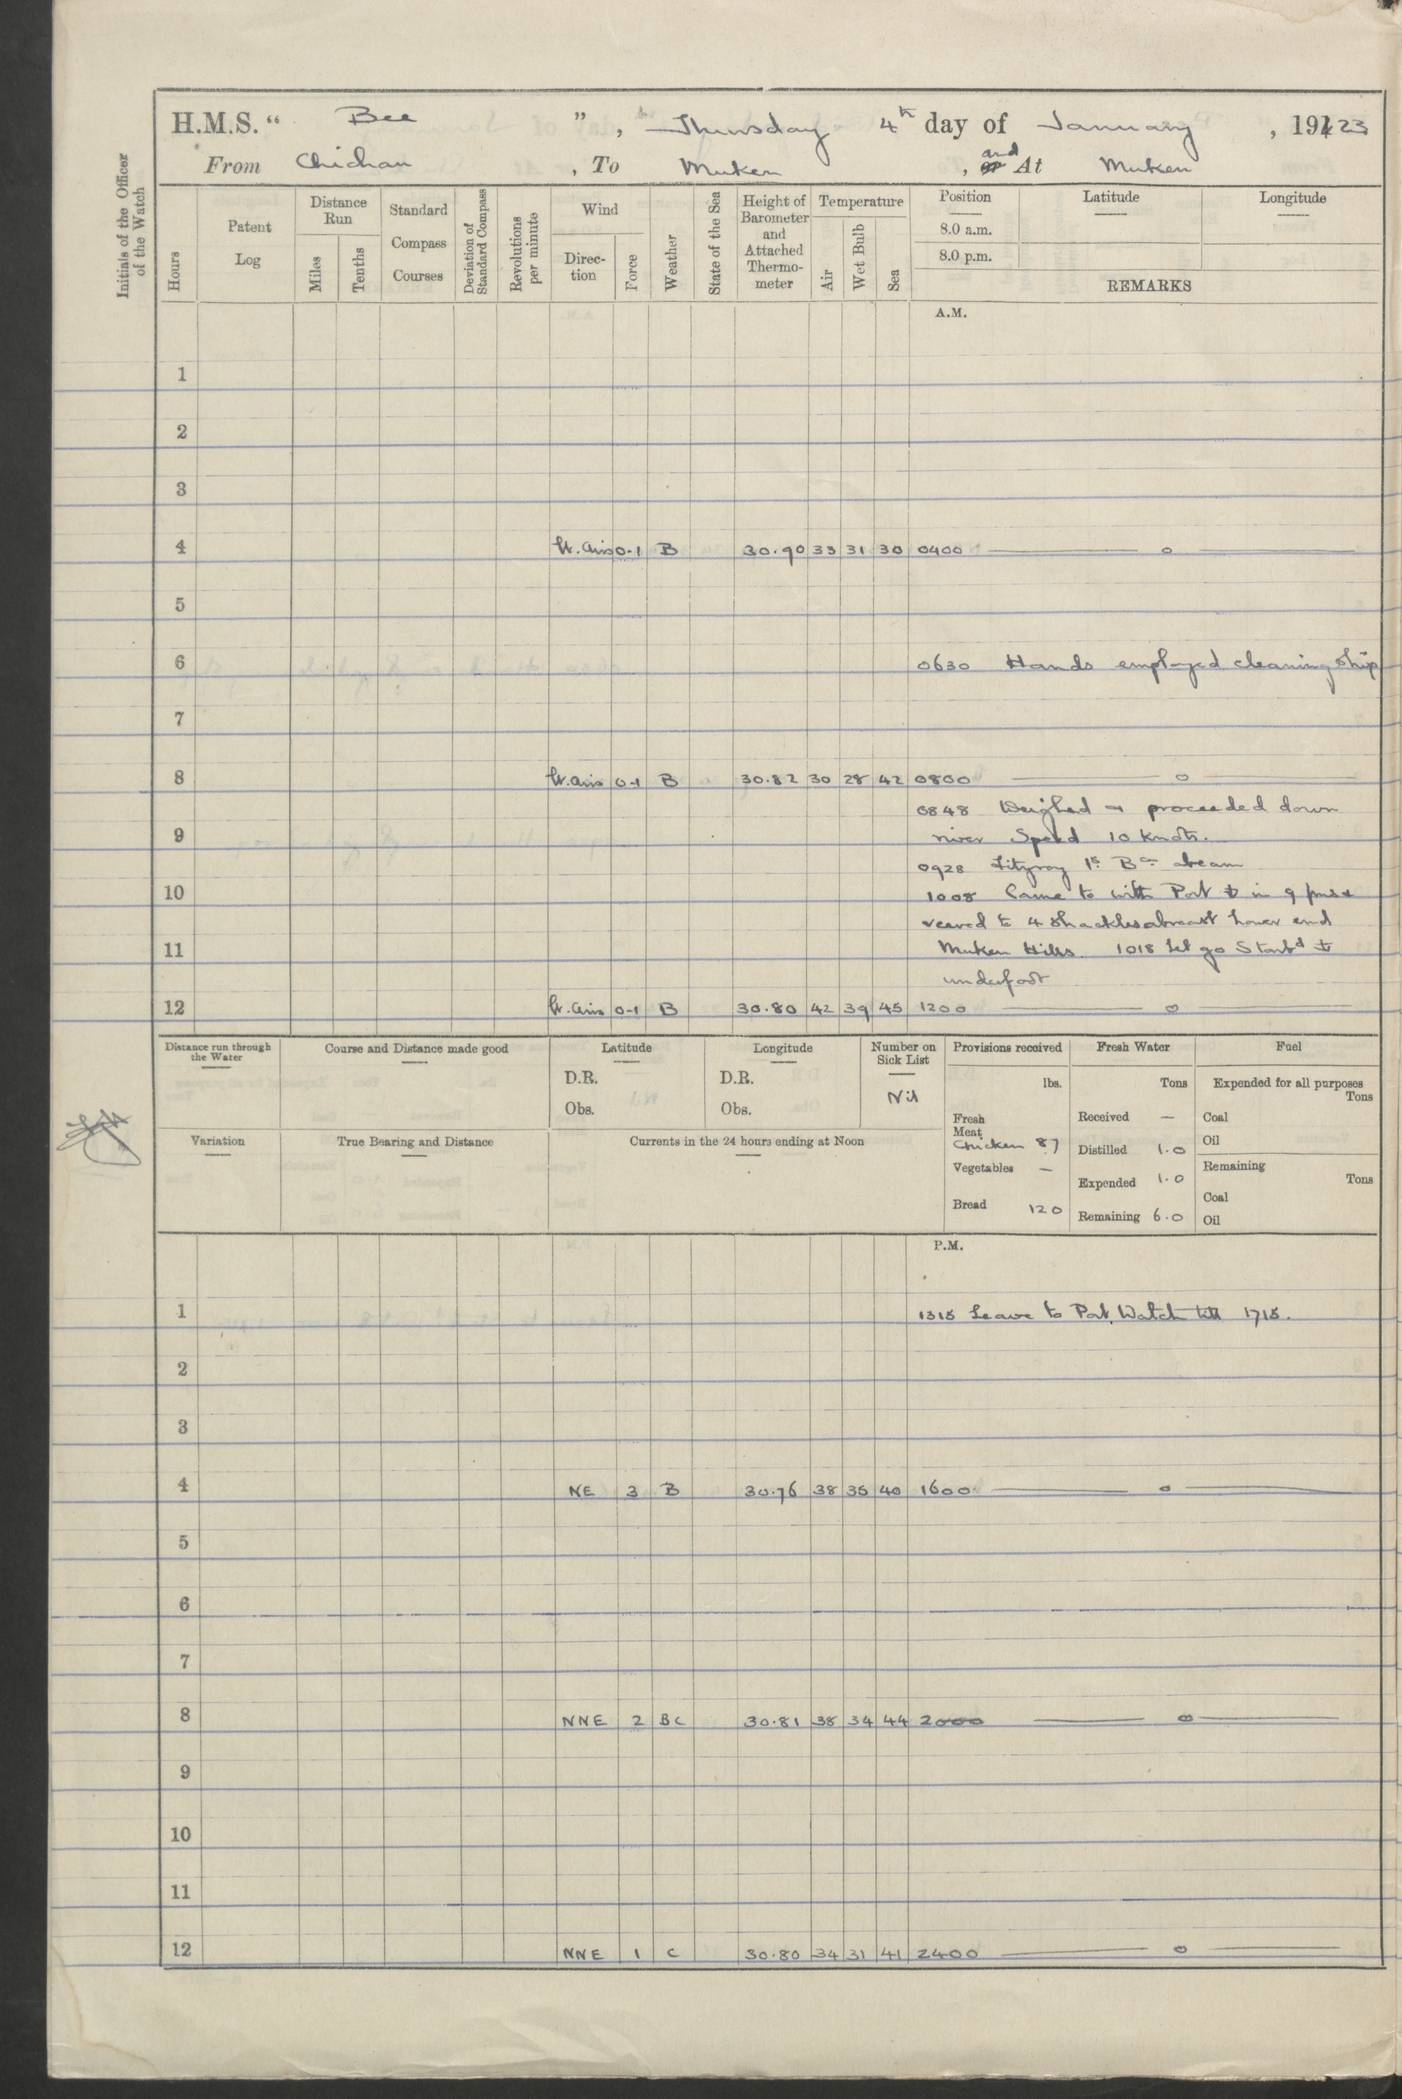 H.M.S. " Bee ", Thursday 4th day of January, 1923
From Chichan, To Muken, and At Muken
Initials of the Officer of the Watch
Hours
Patent Log
Distance Run
Miles
Tenths
Standard Compass Courses
Deviation of Standard Compass
Revolutions per minute
Wind
Direction
Force
Weather
State of the Sea
Height of Barometer and Attached Thermometer
Temperature
Air
Wet Bulb
Sea
Position
8.0 a.m.
8.0 p.m.
Latitude
Longitude
REMARKS
A.M.
1
2
3
4 Lt. Airs 0-1 B 30.90 33 31 30 0400 o
5
6 0630 Hands employed cleaning ship
7
8 Lt. airs 0-1 B 30.82 30 28 42 0800 o
0848 Weighed & proceeded down
9 river Speed 10 knots.
0928 Fitzroy 1s. Bn abeam
10 1008 Came to with Port ⚓ in 9 fms &
veered to 4 shackles abreast lower end
11 Muken Hills. 1018 Let go Starbd ⚓
underfoot
12 Lt. Airs 0-1 B 30.80 42 39 45 1200 o
Distance run through the Water
Course and Distance made good
Latitude
D.R.
Obs.
Longitude
D.R.
Obs.
Number on Sick List
Nil
Provisions received
lbs.
Fresh Meat
Chicken 87
Vegetables —
Bread 120
Fresh Water
Tons
Received —
Distilled 1.0
Expended 1.0
Remaining 6.0
Fuel
Expended for all purposes
Tons
Coal
Oil
Remaining
Tons
Coal
Oil
Variation
True Bearing and Distance
Currents in the 24 hours ending at Noon
P.M.
1 1315 Leave to Port Watch till 1715.
2
3
4 NE 3 B 30.76 38 35 40 1600 o
5
6
7
8 NNE 2 BC 30.81 38 34 44 2000 o
9
10
11
12 NNE 1 C 30.80 34 31 41 2400 o